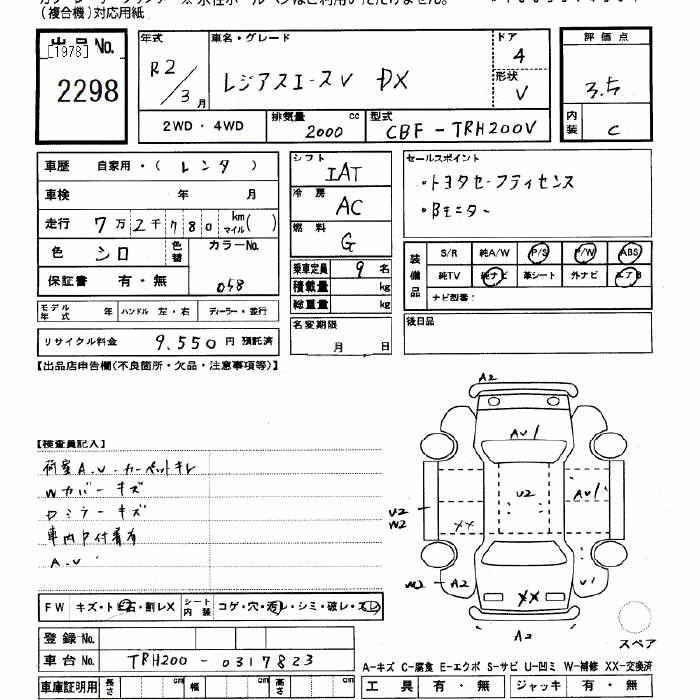 (複合機)対応用紙
出品No.
[1978]
2298
年式
R2/3月
車名・グレード
レジアスエースV DX
ドア
4
形状
V
評価点
3.5
内装
C
2WD・4WD
排気量 2000 cc
型式 CBF-TRH200V
車歴 自家用・(レンタ)
車検 年 月
走行 7万2千780 km マイル( )
色 シロ
色替
カラーNo.
058
保証書 有・無
モデル年式 年 ハンドル 左・右 ディーラー・並行
リサイクル料金 9,550円 預託済
シフト
IAT
冷房
AC
燃料
G
乗車定員 9名
積載量 kg
総重量 kg
名変期限
月 日
セールスポイント
・トヨタセーフティセンス
・Bモニター
装備品
S/R 純A/W P/S P/W ABS
純TV 純ナビ 革シート 外ナビ エアB
ナビ型番:
後日品
【出品店申告欄(不良箇所・欠品・注意事項等)】
【検査員記入】
荷室A.U.カーペットキレ
Wカバーキズ
Dミラーキズ
車内P付着有
A.U
A2
AU1
U2
AU1
U2
W2
XX
W2
A2
XX
U1
A2
スペア
FW キズ・トビ石・割レX シート内装 コゲ・穴・汚レ・シミ・破レ・スレ
登録No.
車台No. TRH200-0317823
車庫証明用 長さ cm 幅 cm 高さ cm
A-キズ C-腐食 E-エクボ S-サビ U-凹ミ W-補修 XX-交換済
工具 有・無 ジャッキ 有・無